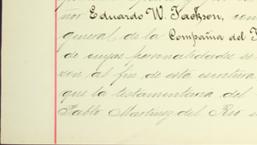 nor Eduardo W. Jackson, con
general, de la Compañia del F
de cuyas personalidades se
zon al fin de esta escritura
que la testamentaria del
Pablo Martinez del Rio